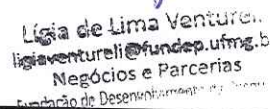 Lígia de Lima Venturel
ligiaventureli@fundep.ufmg.b
Negócios e Parcerias
Fundação de Desenvolvimento